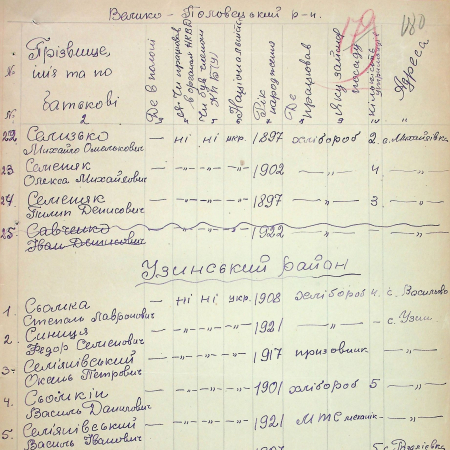 Велико-Половецький р-н.
180
Прізвище, ім'я та по батькові
Де в полоні
Національність
Рік народження
Де працював
яку займав посаду
Адреса
№
2
22 Сализько Михайло Омелькович — ні ні укр. 1897 хлібороб 2 с. Михайлівка
23 Семеняк Олекса Михайлович — -"- -"- -"- 1902 -"- 4 -"-
24 Семеняк Пилип Денисович — -"- -"- -"- 1897 -"- 3 -"-
25 Савченко Іван Денисович — -"- -"- -"- 1922 -"- -"-
Узинський район
1. Сьомка Степан Лавронович — ні ні укр. 1908 хлібороб 4.
2. Синиця Федор Семенович — -"- -"- -"- 1921 -"- — с. Узин
3. Селянівський Петрович — -"- -"- -"- 1917 призовник -"-
4. Сьомкін Василь Данилович — -"- -"- -"- 1901 хлібороб 5 -"-
5. Селянівський Василь Іванович — -"- -"- -"- 1921 МТС механік — -"-